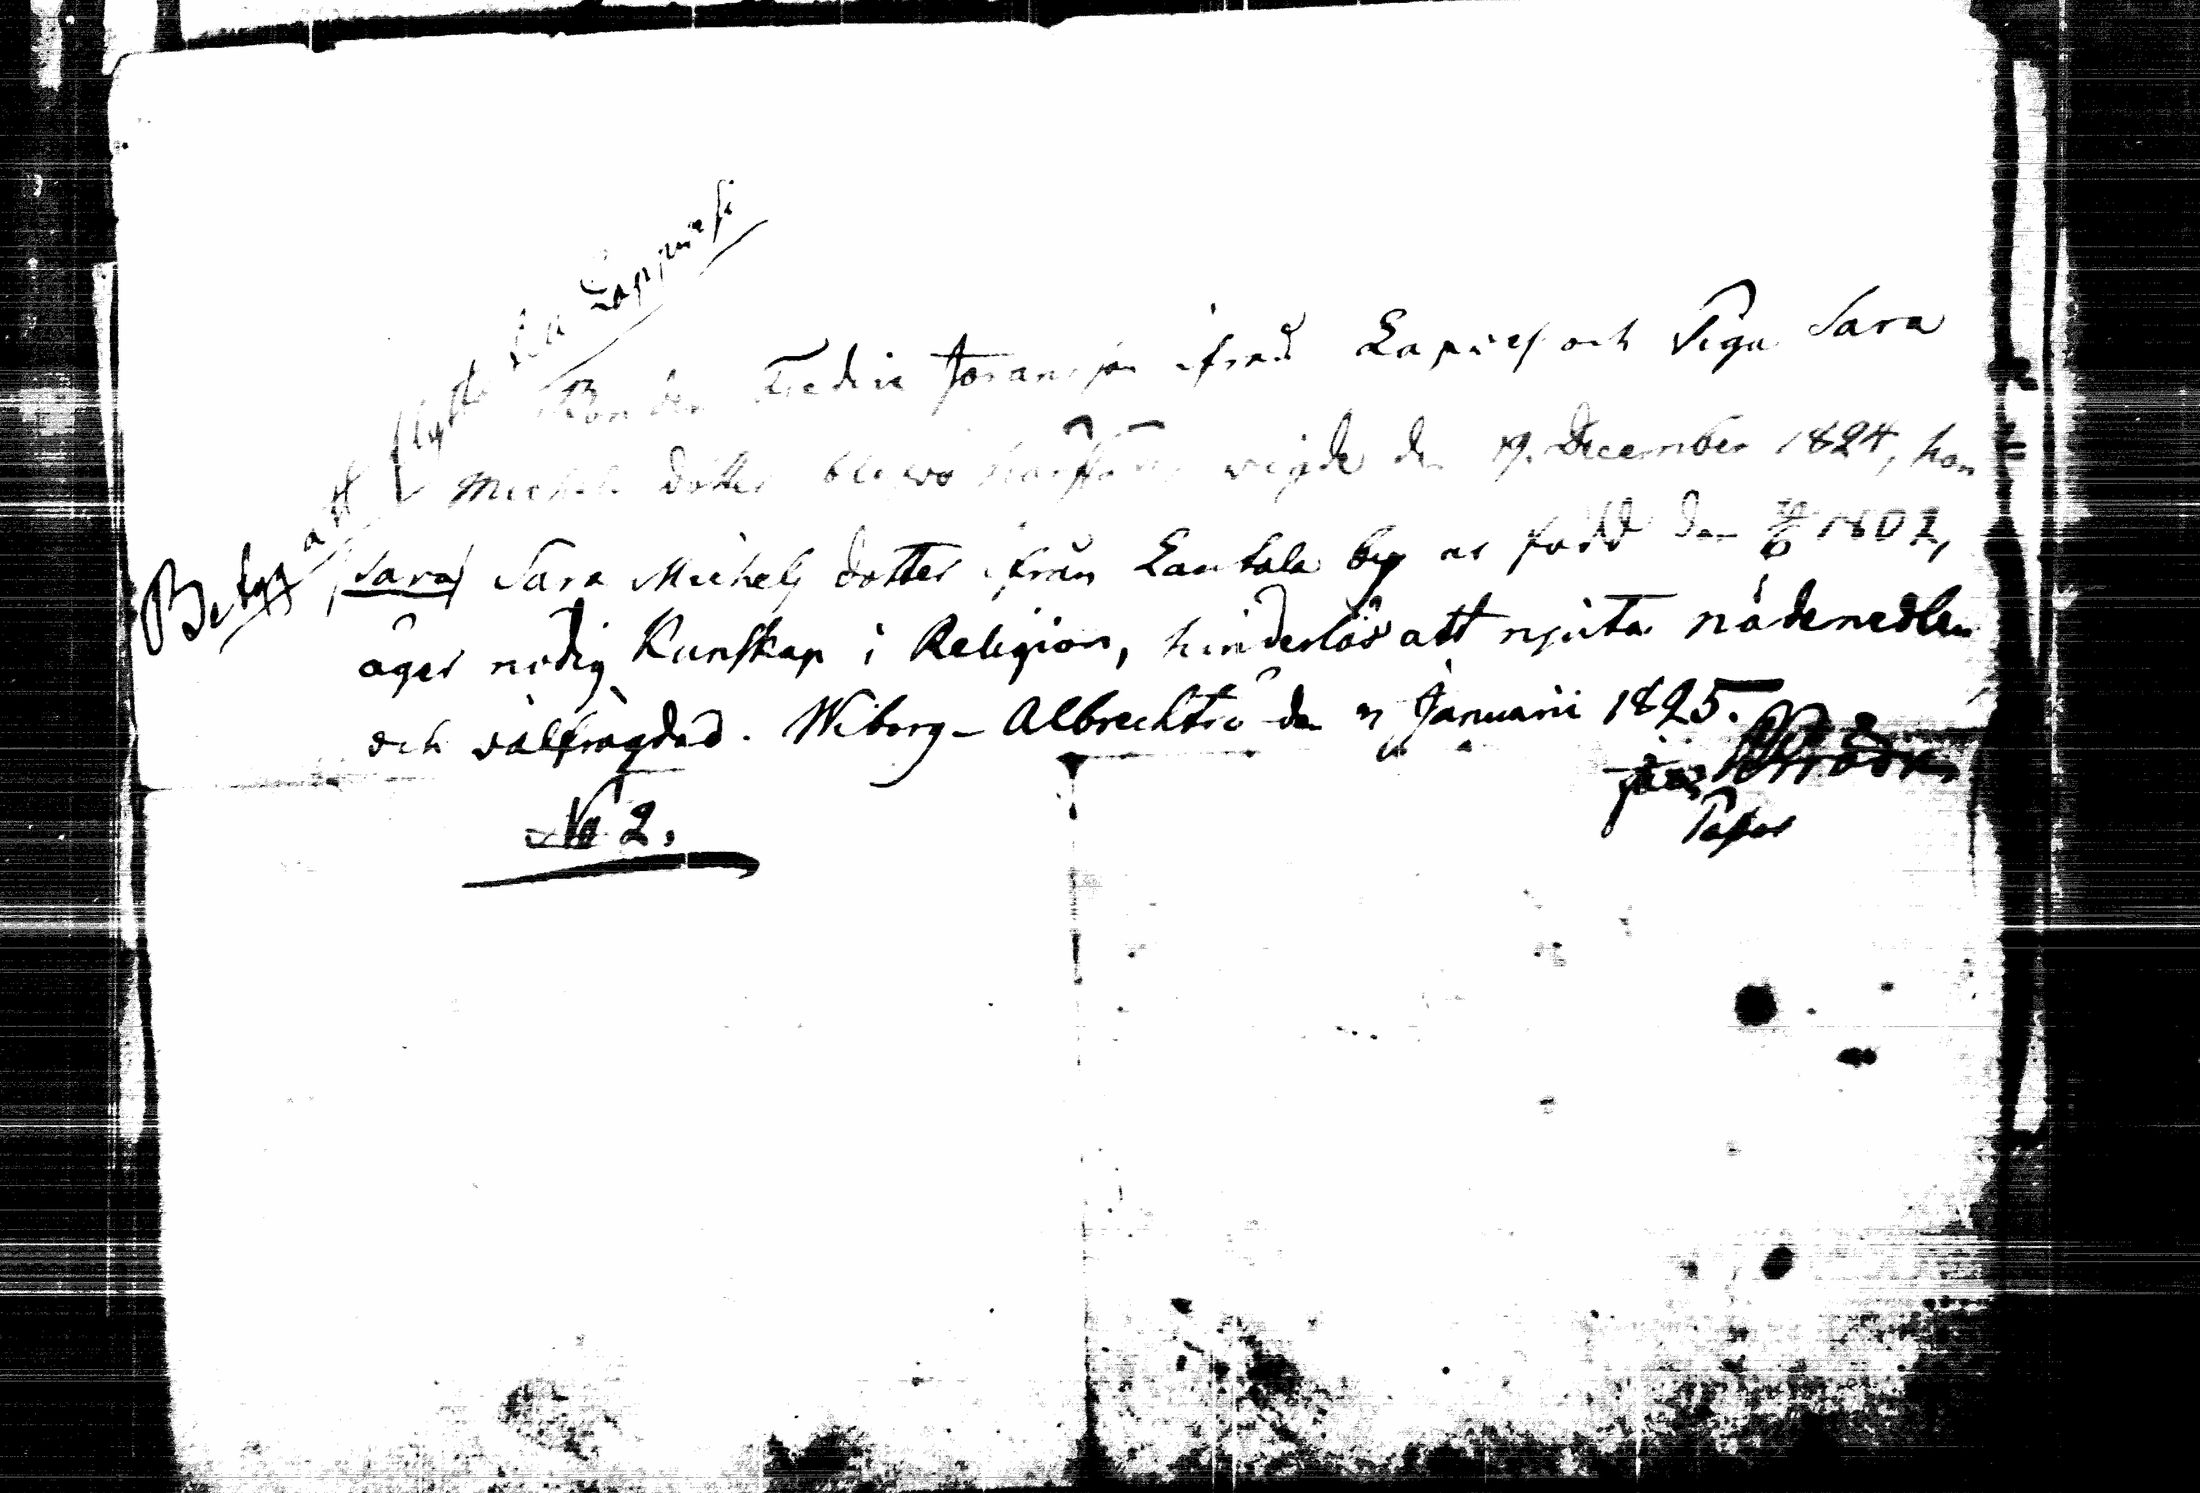 Betyg att flytta till Lappvesi
Bonden Fredric Joransson ifrån Lapves och Piga Sara
Michels dotter blefvo härstädes wigde den 19. December 1824, hon
(Sara) Sara Michels dotter ifrån Lautala by är född den 1802,
äger nödig Kunskap i Religion, hinderlös att njuta nådemedlen
och välfrägdad. Wiborg - Albrechtsé den Januarii 1825.
Pastor
No 2.